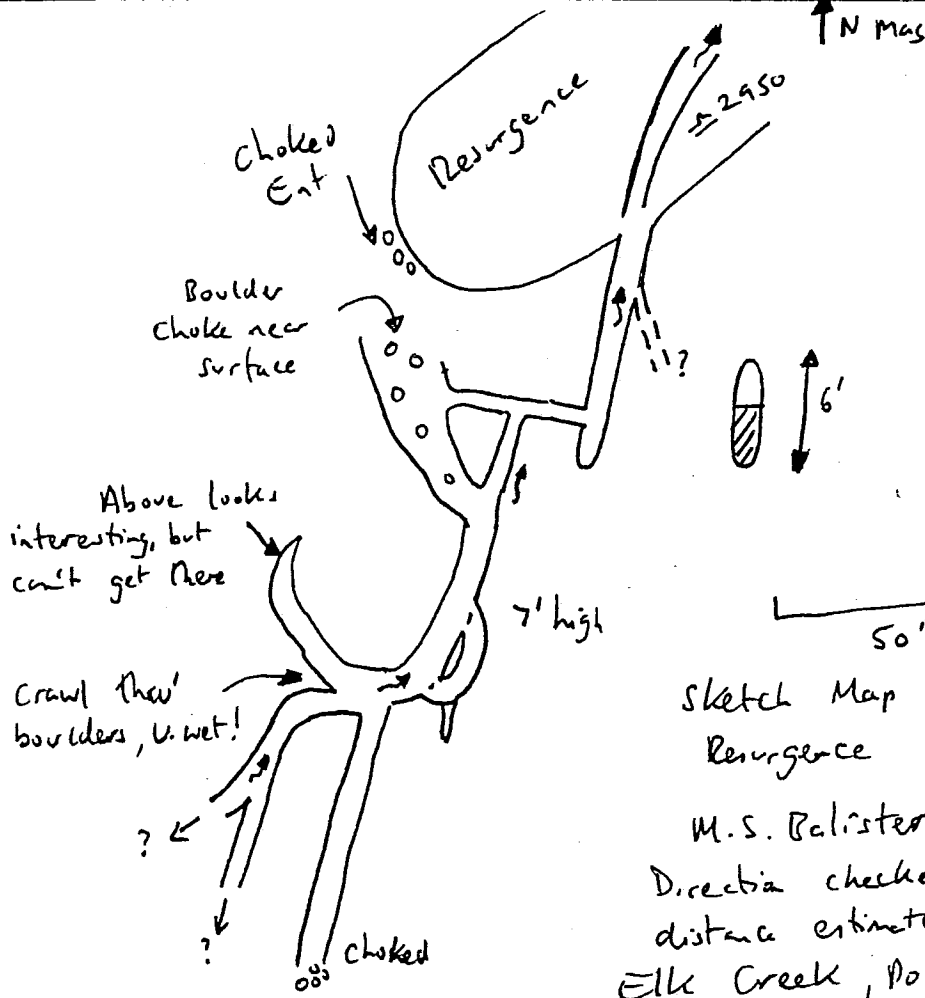 N Mag
Resurgence
≈ 2950
Choked
Ent
Boulder
Choke near
surface
?
6'
Above looks
interesting, but
can't get there
7' high
50'
Crawl thru'
boulders, v. wet!
Sketch Map
Resurgence
M.S. Balister
Direction checke
distance estimat
Elk Creek, Do
?
?
choked